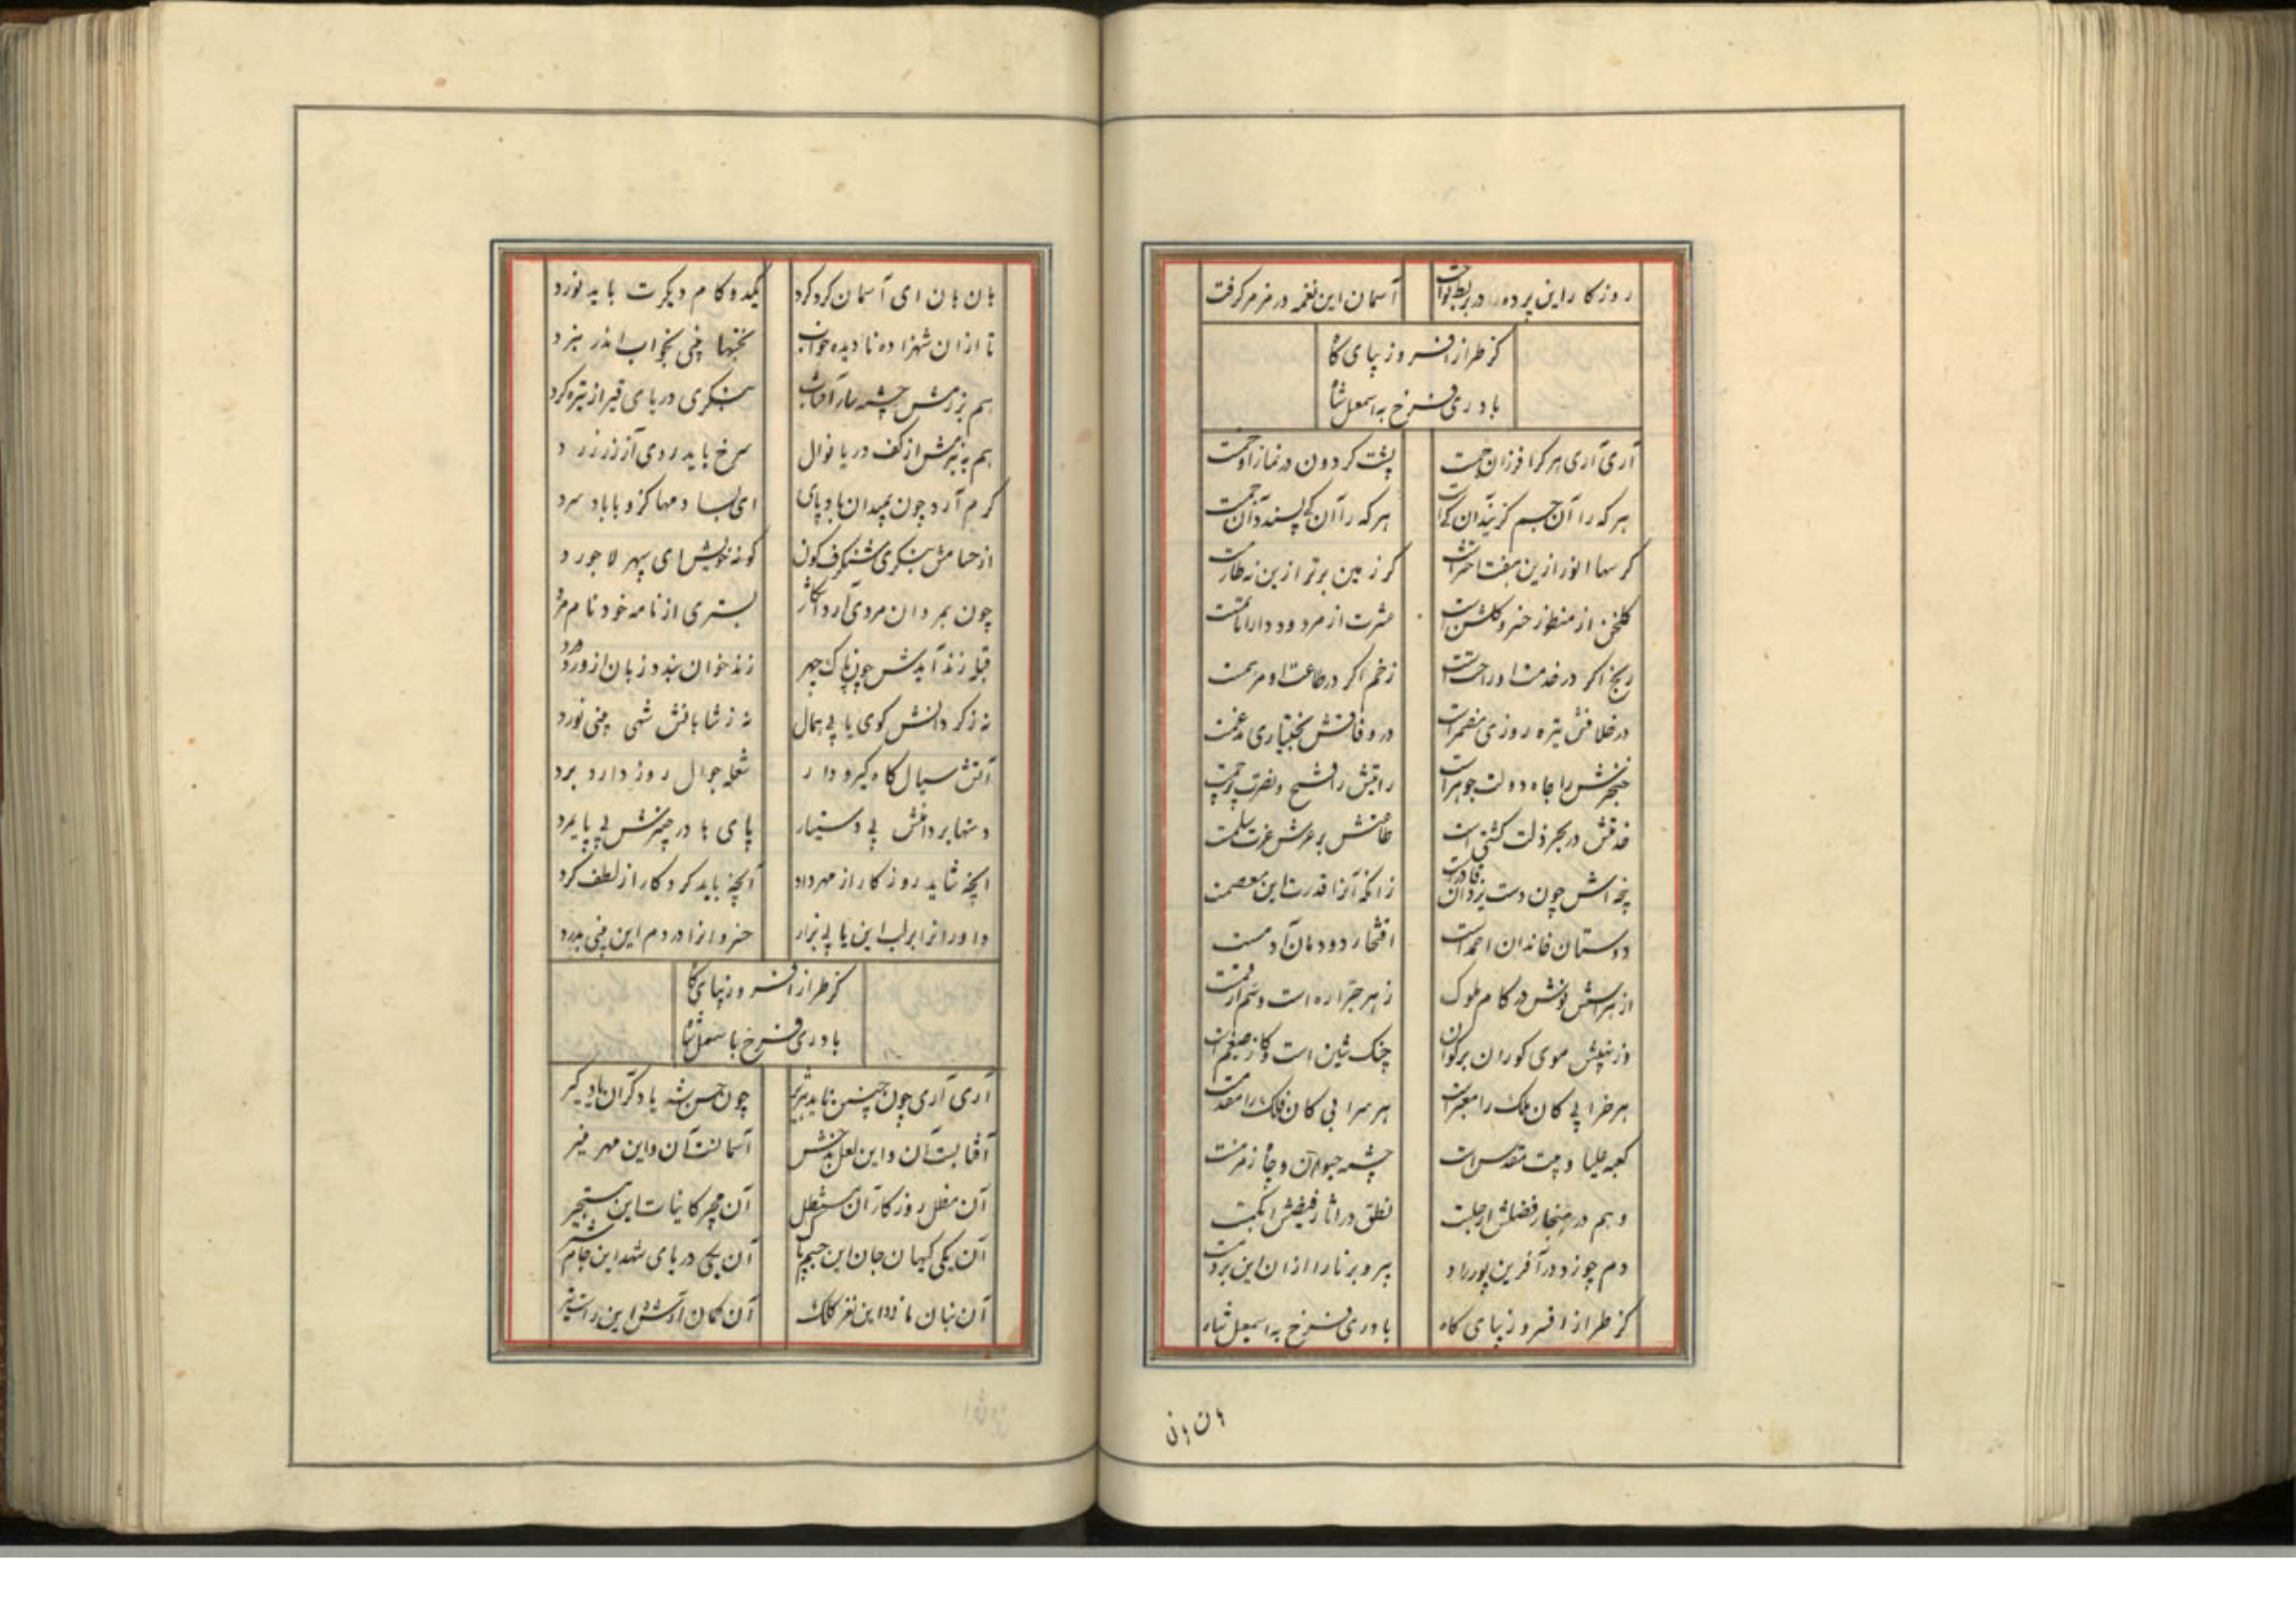 روزکار این پرده در بربط نواخت
آسمان این نغمه در مزمر گرفت
کز طراز افسر و زیبای گاه
یاوری فرخ به اسمعیل شاه
آری آری هر کرا فر زان جمت
پشت گردون در نماز او خمت
هر که را آن
هر که را آن
کر سها انور ازین هفت اخترست
کر زمین برتر ازین نه طارمت
گلخن از منظور خسرو گلشن است
عشرت از مردود دارا ماتمست
رنج اگر در خدمت او راحتست
زخم اگر در طاعت او مرهمت
در خلافش تیره روزی مضمرست
در وفاقش بختیاری مدغمت
خنجرش را جاه و دولت جوهرست
رایتش را فتح و نصرت پرچمت
خدمتش در بحر ذلت کشتی است
طاعتش بر عرش عزت سلمت
پنجه اش چون دست یزدان قادرست
زانکه آنرا قدرت این معصمت
دوستان خاندان احمدست
افتخار دودمان آدمست
از هراسش نوش در کام ملوک
زهر جراره است و سم ارقمت
وز نهیبش موی کوران برکوان
چنک شیرین است و کاز ضیغم است
هر خرابی کان ملک را معبرست
هر سرابی کان فلک را مقدمت
کعبه علیا و بیت مقدس است
چشمه حیوان و چاه زمزمت
وهم در هنجار فضلش ارجلت
نطق در آثار فیضش ابکمت
دم چو زد در آفرین پور راد
پیر و برنا را از ان این بردمت
کز طراز افسر و زیبای گاه
یاوری فرخ به اسمعیل شاه
هان هان
هان هان ای آسمان گرد گرد
یکدو گام دیگرت باید نورد
تا از ان شهزاده نادیده خواب
بختها بینی بخواب اندر نبرد
هم برزمش چشمه سار آفتاب
بنگری دریای قیر از تیره گرد
هم به بزمش از کف دریا نوال
سرخ باید روی آز از زر زرد
گرم آرد چون بمیدان بادپای
ای بسا دمها کزو بادا سرد
از حسامش بنگری شنگرف گون
گونه خویش ای سپهر لاجورد
چون بمردان مردی آرد آشکار
بستری از نامه خود نام مرد
زند خوان بندد زبان از ورد ورد
نه ز گردانش گوی یابی همال
نه ز شاهانش شهی بینی نورد
آتش سیال گاه گیر و دار
شعله جوال روز دار و برد
دستها بر دامنش بی دستیار
پای ها در چنبرش بی پایمرد
آنچه شاید روزگار از مهر داد
آنچه باید کردگار از لطف کرد
داوران را بر لب این یابی بزار
خسروان را در دم این بینی بدرد
کز طراز افسر و زیبای گاه
یاوری فرخ با سمعیل شاه
آری آری چون چنین ناید پذیر
چون حسن شه یادگران یادگیر
آفتابست آن و این لعل بدخش
آسمانست آن و این مهر منیر
آن مظل روزگار آن مستظل
آن مجیر کاینات این مستجیر
آن یکی کیهان جان این جسم پاک
آن یکی دریای شهد این جام شیر
آن بنان مازد و این نغز کلک
آن کمان آرش و این راست تیر